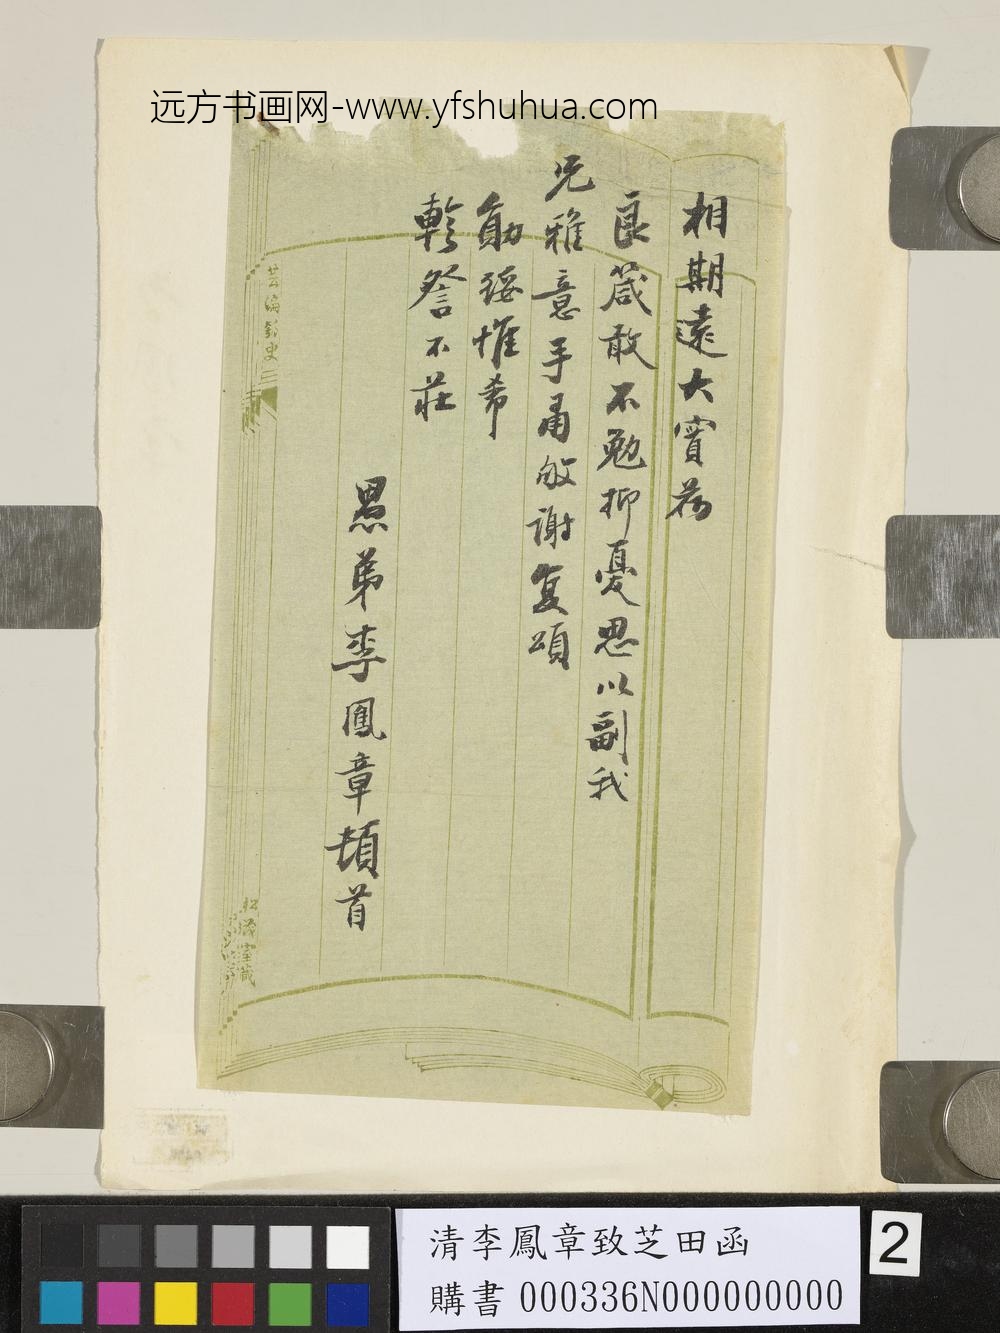 远方书画网-www.yfshuhua.com
相期遠大實荷
良箴敢不勉抑憂思以副我
兄雅意手肅敬謝复頌
勛綏惟希
軫詧不莊
愚弟李鳳章頓首
清李鳳章致芝田函
購書 000336N000000000
2